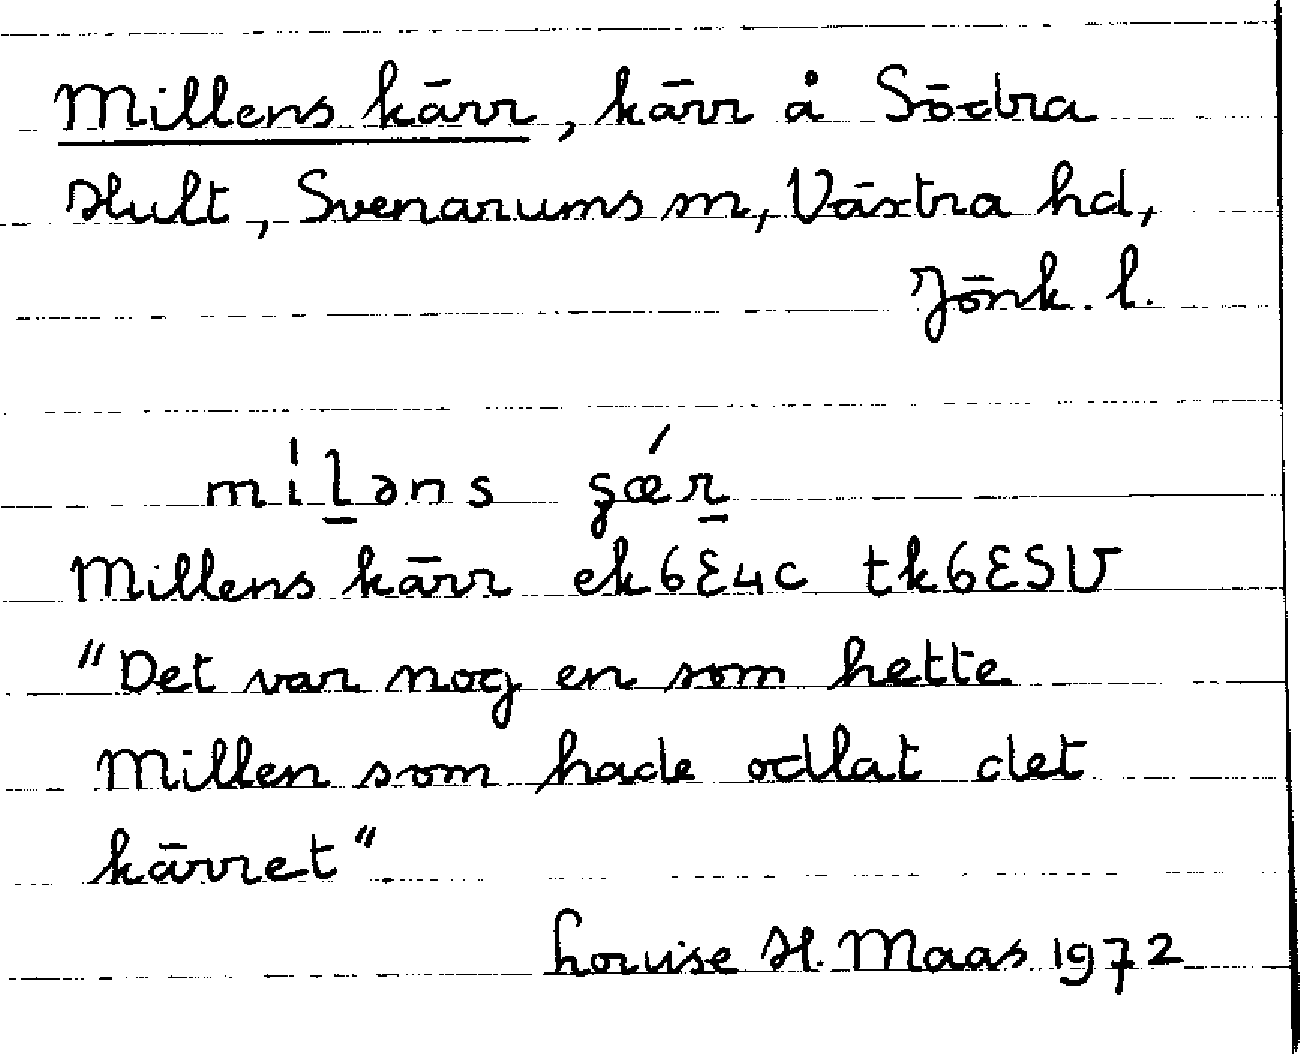 Millens kärr, kärr å Södra
Hult, Svenarums sn, Västra hd,
Jönk. l.
míḷəns ȿǽṟ
Millens kärr ek6E4c tk6ESV
"Det var nog en som hette
Millen som hade odlat det
kärret"
Louise H. Maas 1972